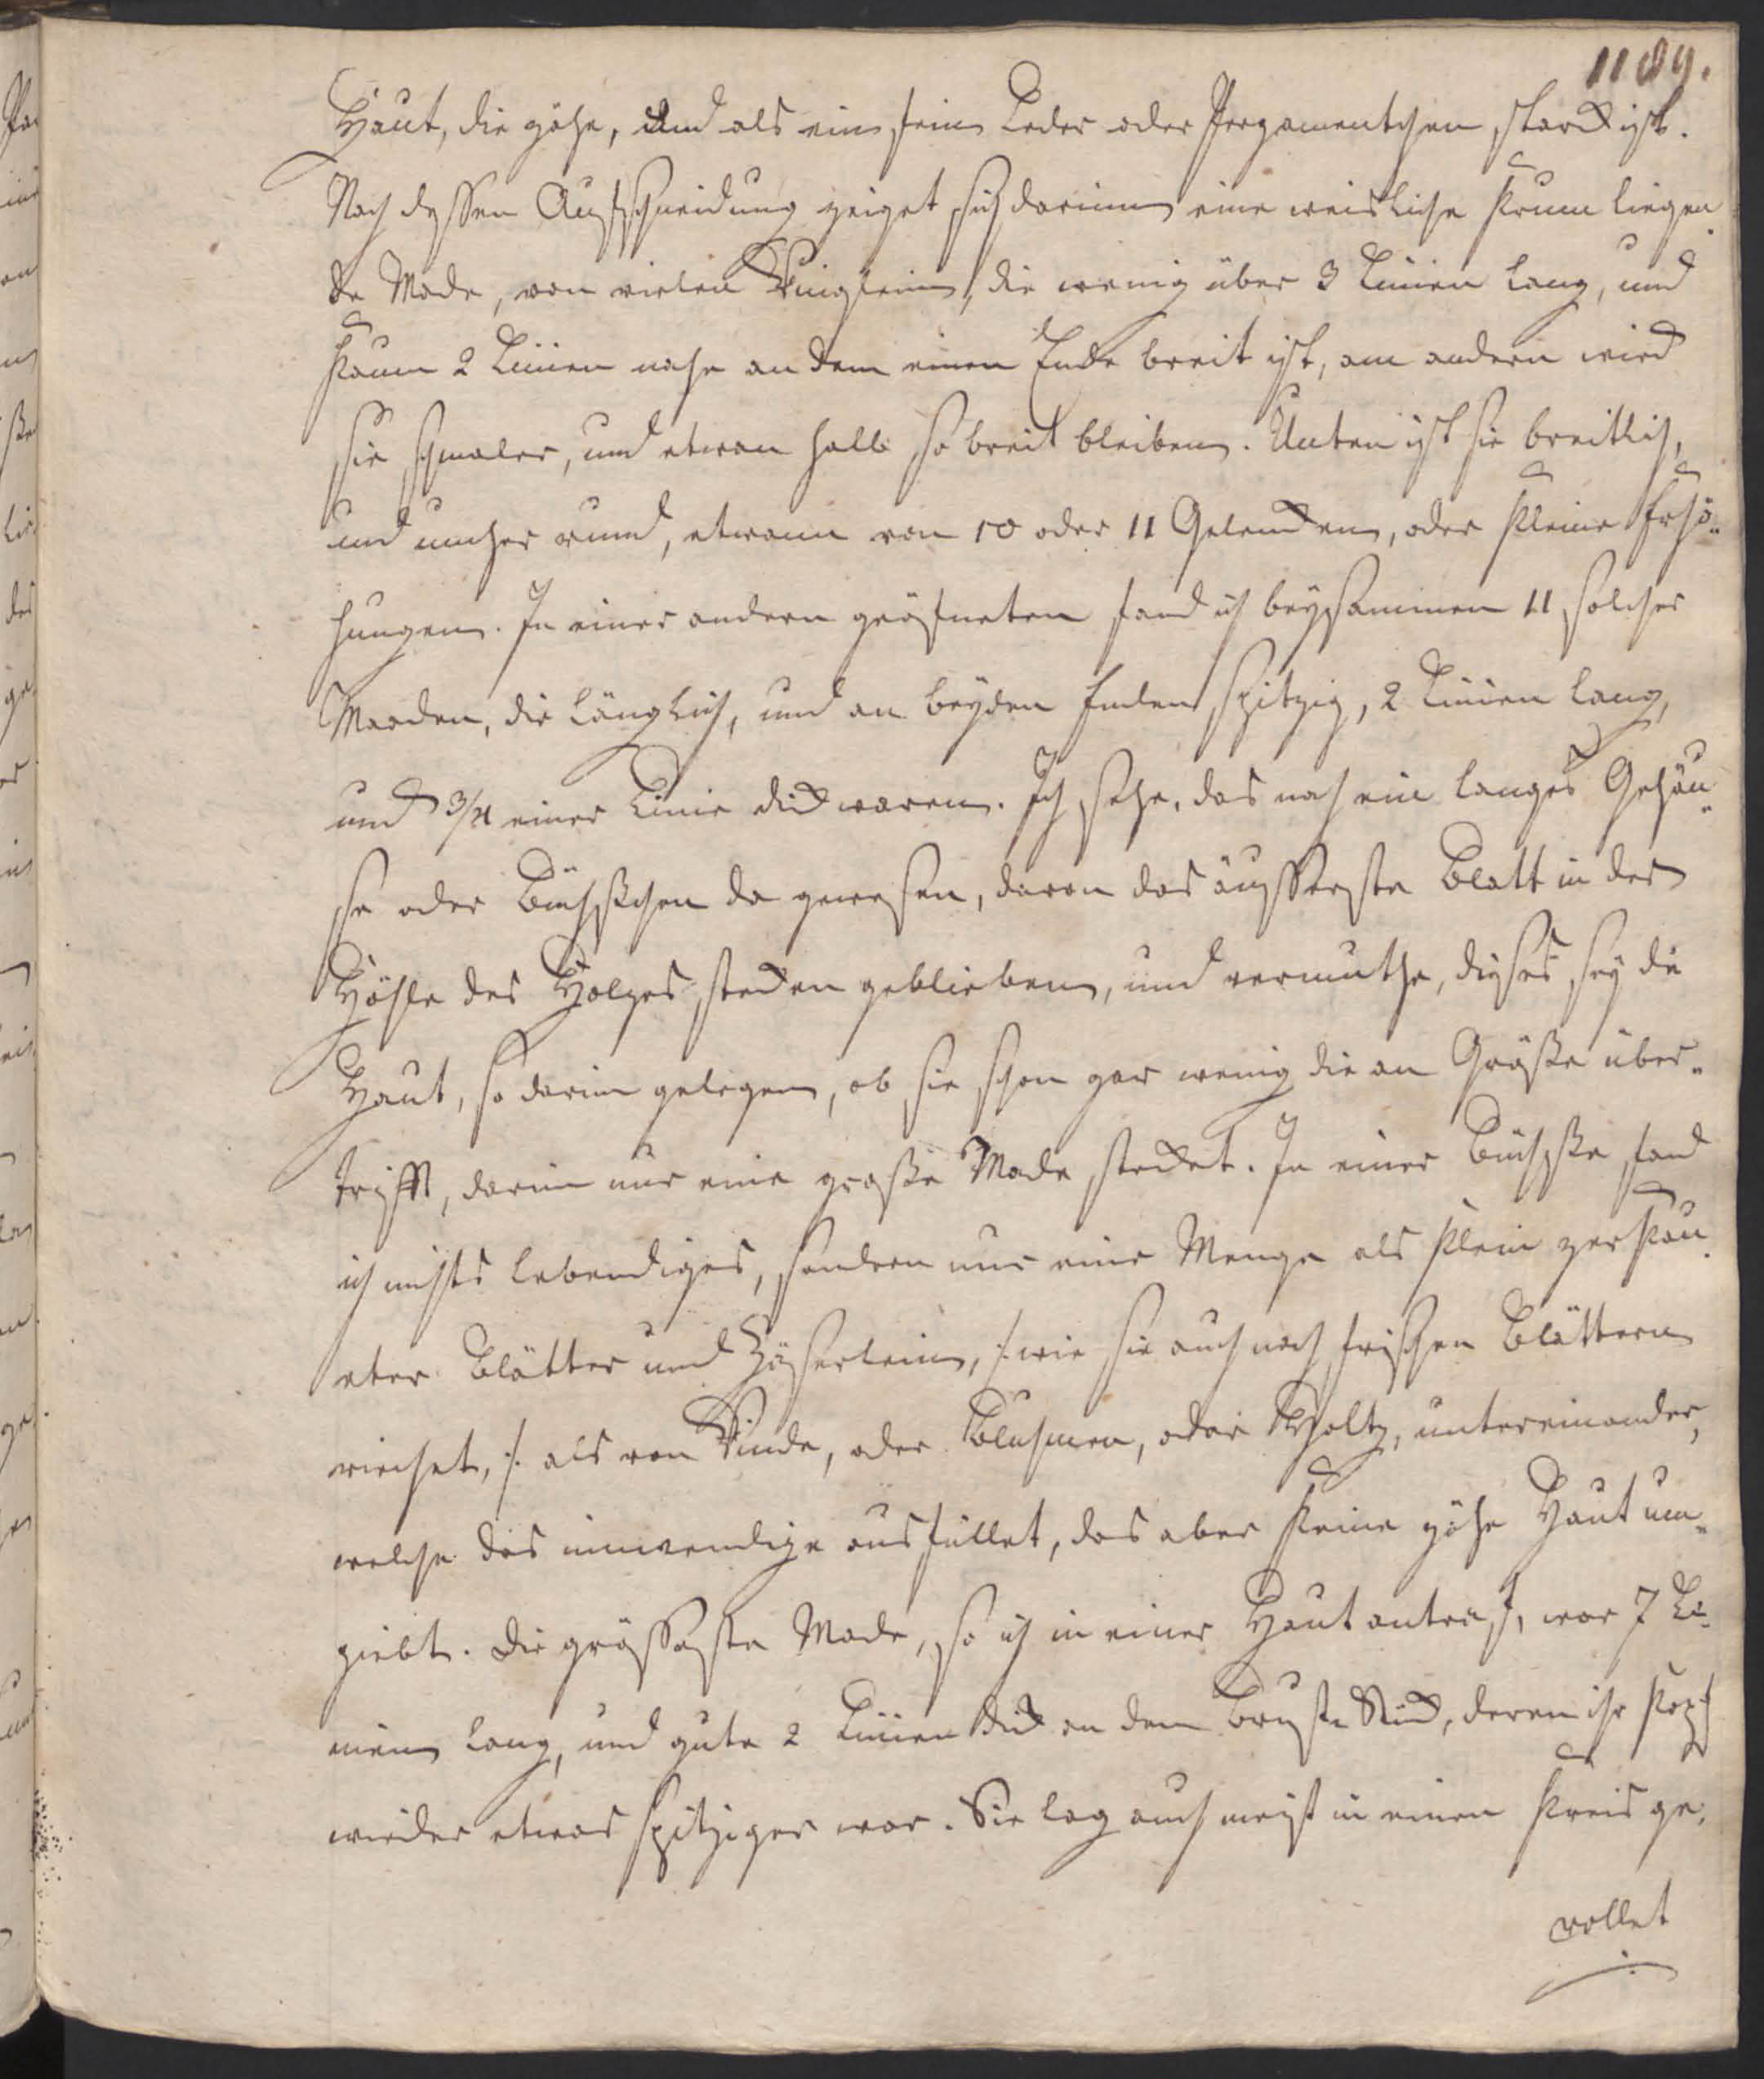 1189.
Haut, die zähe, und als ein fein Leder oder Pergamentchen starck ist.
Nach dessen Aufschneidung zeiget sich darinn eine weisliche krum liegen-
de Made, von vielen Ringlein, die wenig über 3 Linien lang, und
kaum 2 Linien nahe an dem einen Ende breit ist, am andern wird
sie schmaler, und etwan halb so breit bleiben. Unten ist sie breitlich,
und umher rund, etwann von 10 oder 11 Gelencken, oder kleine Erhö-
hungen. In einer andern geöfneten fand ich beysammen 11 solcher
Maaden, die länglich, und an beyden Enden spitzig, 2 Linien lang,
und 3/4 einer Linie dick waren. Ich sehe, das noch ein langes Gehäu-
se oder Büchschen da gewesen, davon das äusserste Blatt in der
Höhle des Holzes stecken geblieben, und vermuthe, dieses sey die
Haut, so darin gelegen, ob sie schon gar wenig die an Größe über-
trifft, darin nur eine große Made stecket. In einer Büchse fand
ich nichts lebendiges, sondern nur eine Menge als klein zerkäu-
eter Blätter und Zäserlein, /: wie sie auch nach frischen Blättern
riechet, :/ als von Rinde, oder Bluhmen, oder Holtz, untereinander,
welche das inwendige ausfüllet, das aber keine zähe Haut um-
giebt. Die grösseste Made, so ich in einer Haut antraf, war 7 Li-
nien lang, und gute 2 Linien dick an dem Brust Stück, deren ihr Kopf
wieder etwas spitziger war. Sie lag auch meist in einen Kreis ge-
rollet